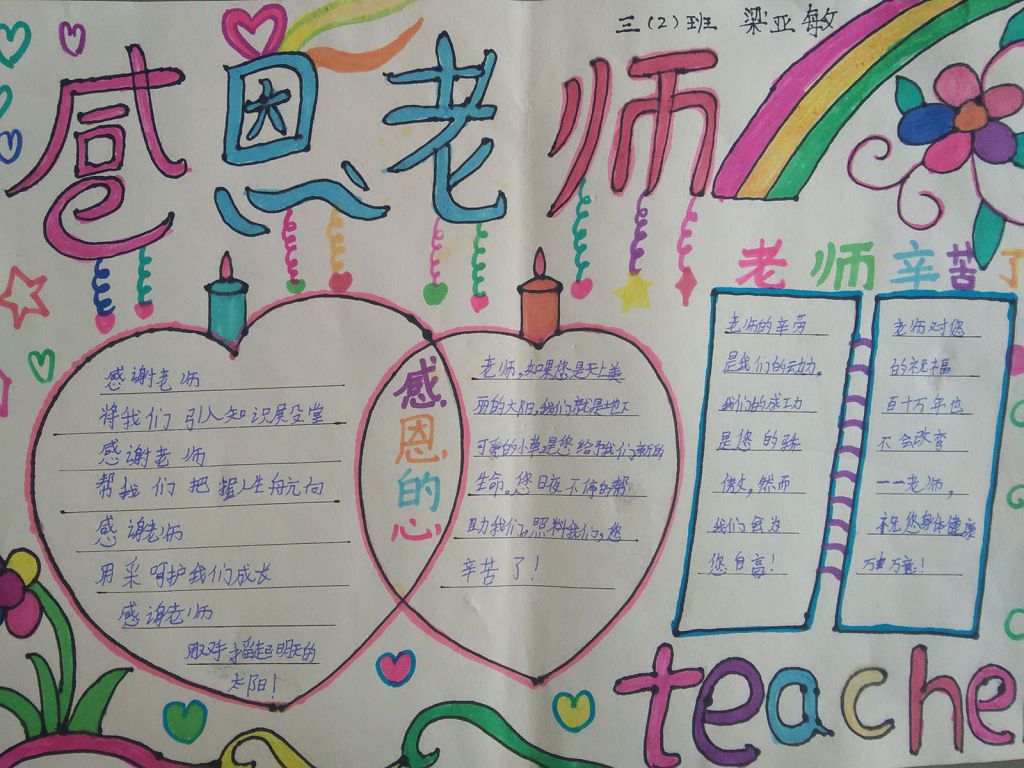 三(2)班 梁亚敏
感恩老师
老师辛苦了
感谢老师
将我们引入知识展受堂
感谢老师
帮我们把握人生航向
感谢老师
用采呵护我们成长
感谢老师
取对手播起明天的
太阳!
感恩的心
老师,如果您是天上美
丽的太阳,我们就是地下
可爱的小草是您给予我们新的
生命。您日夜不停的帮
助我们,照料我们,您
辛苦了!
老师的辛劳
是我们的动力,
我们的成功
是您的骄
傲,然而
我们会为
您自豪!
老师对您
的祝福
百十万年也
不会改变
一一老师,
祝您身体健康
万事万意!
teache